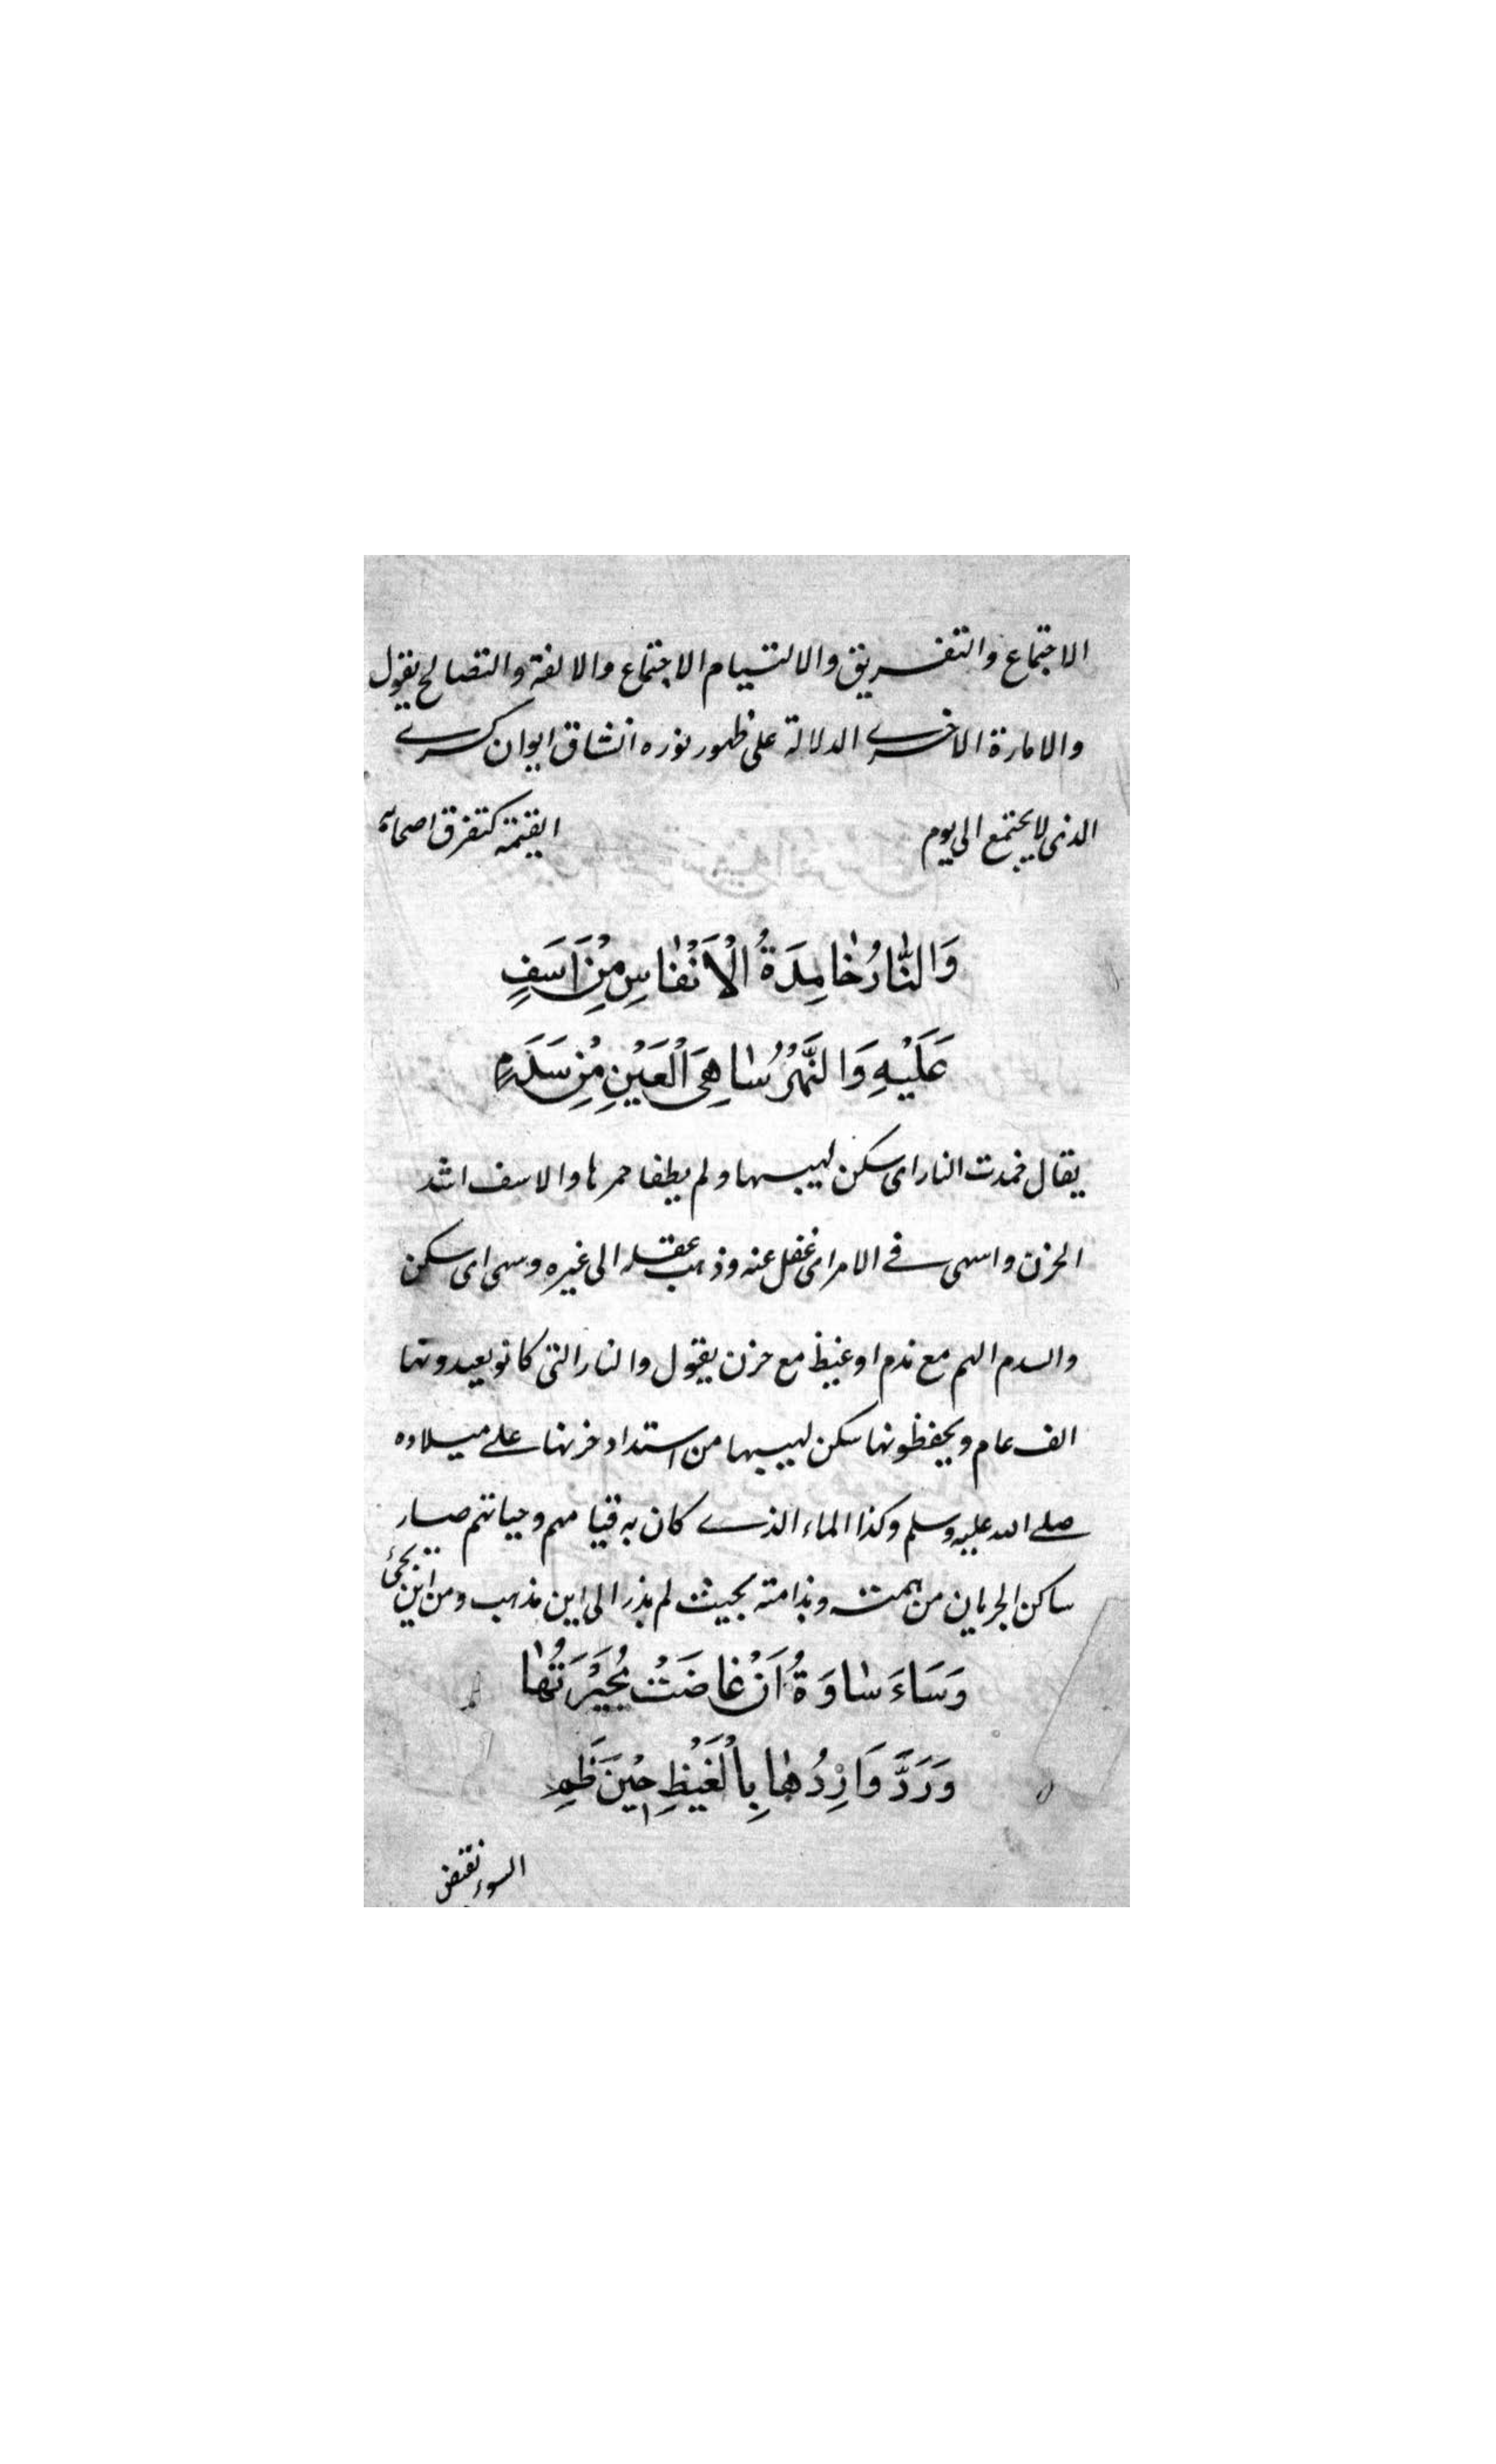 الاجتماع والتفريق والالتيام الاجتماع والالفة والتصالح يقول
والامارة الاخرے الدلالة على ظهور نوره انشاق ايوان كسرے
الذى لا يجتمع الى يوم القيمة كتفرق اصحابه
وَالنَّارُ خَامِدَةُ الْاَنْفَاسِ مِنْ اَسَفٍ
عَلَيْهِ وَالنَّهْرُ سَاهِىَ الْعَيْنِ مِنْ سَدَمٍ
يقال خمدت النار اى سكن لهيبها ولم يطفا جمرها والاسف اشد
الحزن واسهى فے الامر اى غفل عنه وذهب عقله الى غيره وسهى اى سكن
والسدم الهم مع ندم او غيظ مع حزن يقول والنار التى كانو يعبدونها
الف عام ويحفظونها سكن لهيبها من استداد حزنها علے ميلاده
صلے الله عليه وسلم وكذا الماء الذے كان به قيامهم وحياتهم صار
ساكن الجريان من وندامته بحيث لم يدر الى اين يذهب ومن اين يجئ
وَسَاءَ سَاوَةُ اَنْ غَاضَتْ بُحَيْرَتُهَا
وَرَدَّ وَارِدُهَا بِالْغَيْظِ حِيْنَ ظَمِ
السوء نقيض